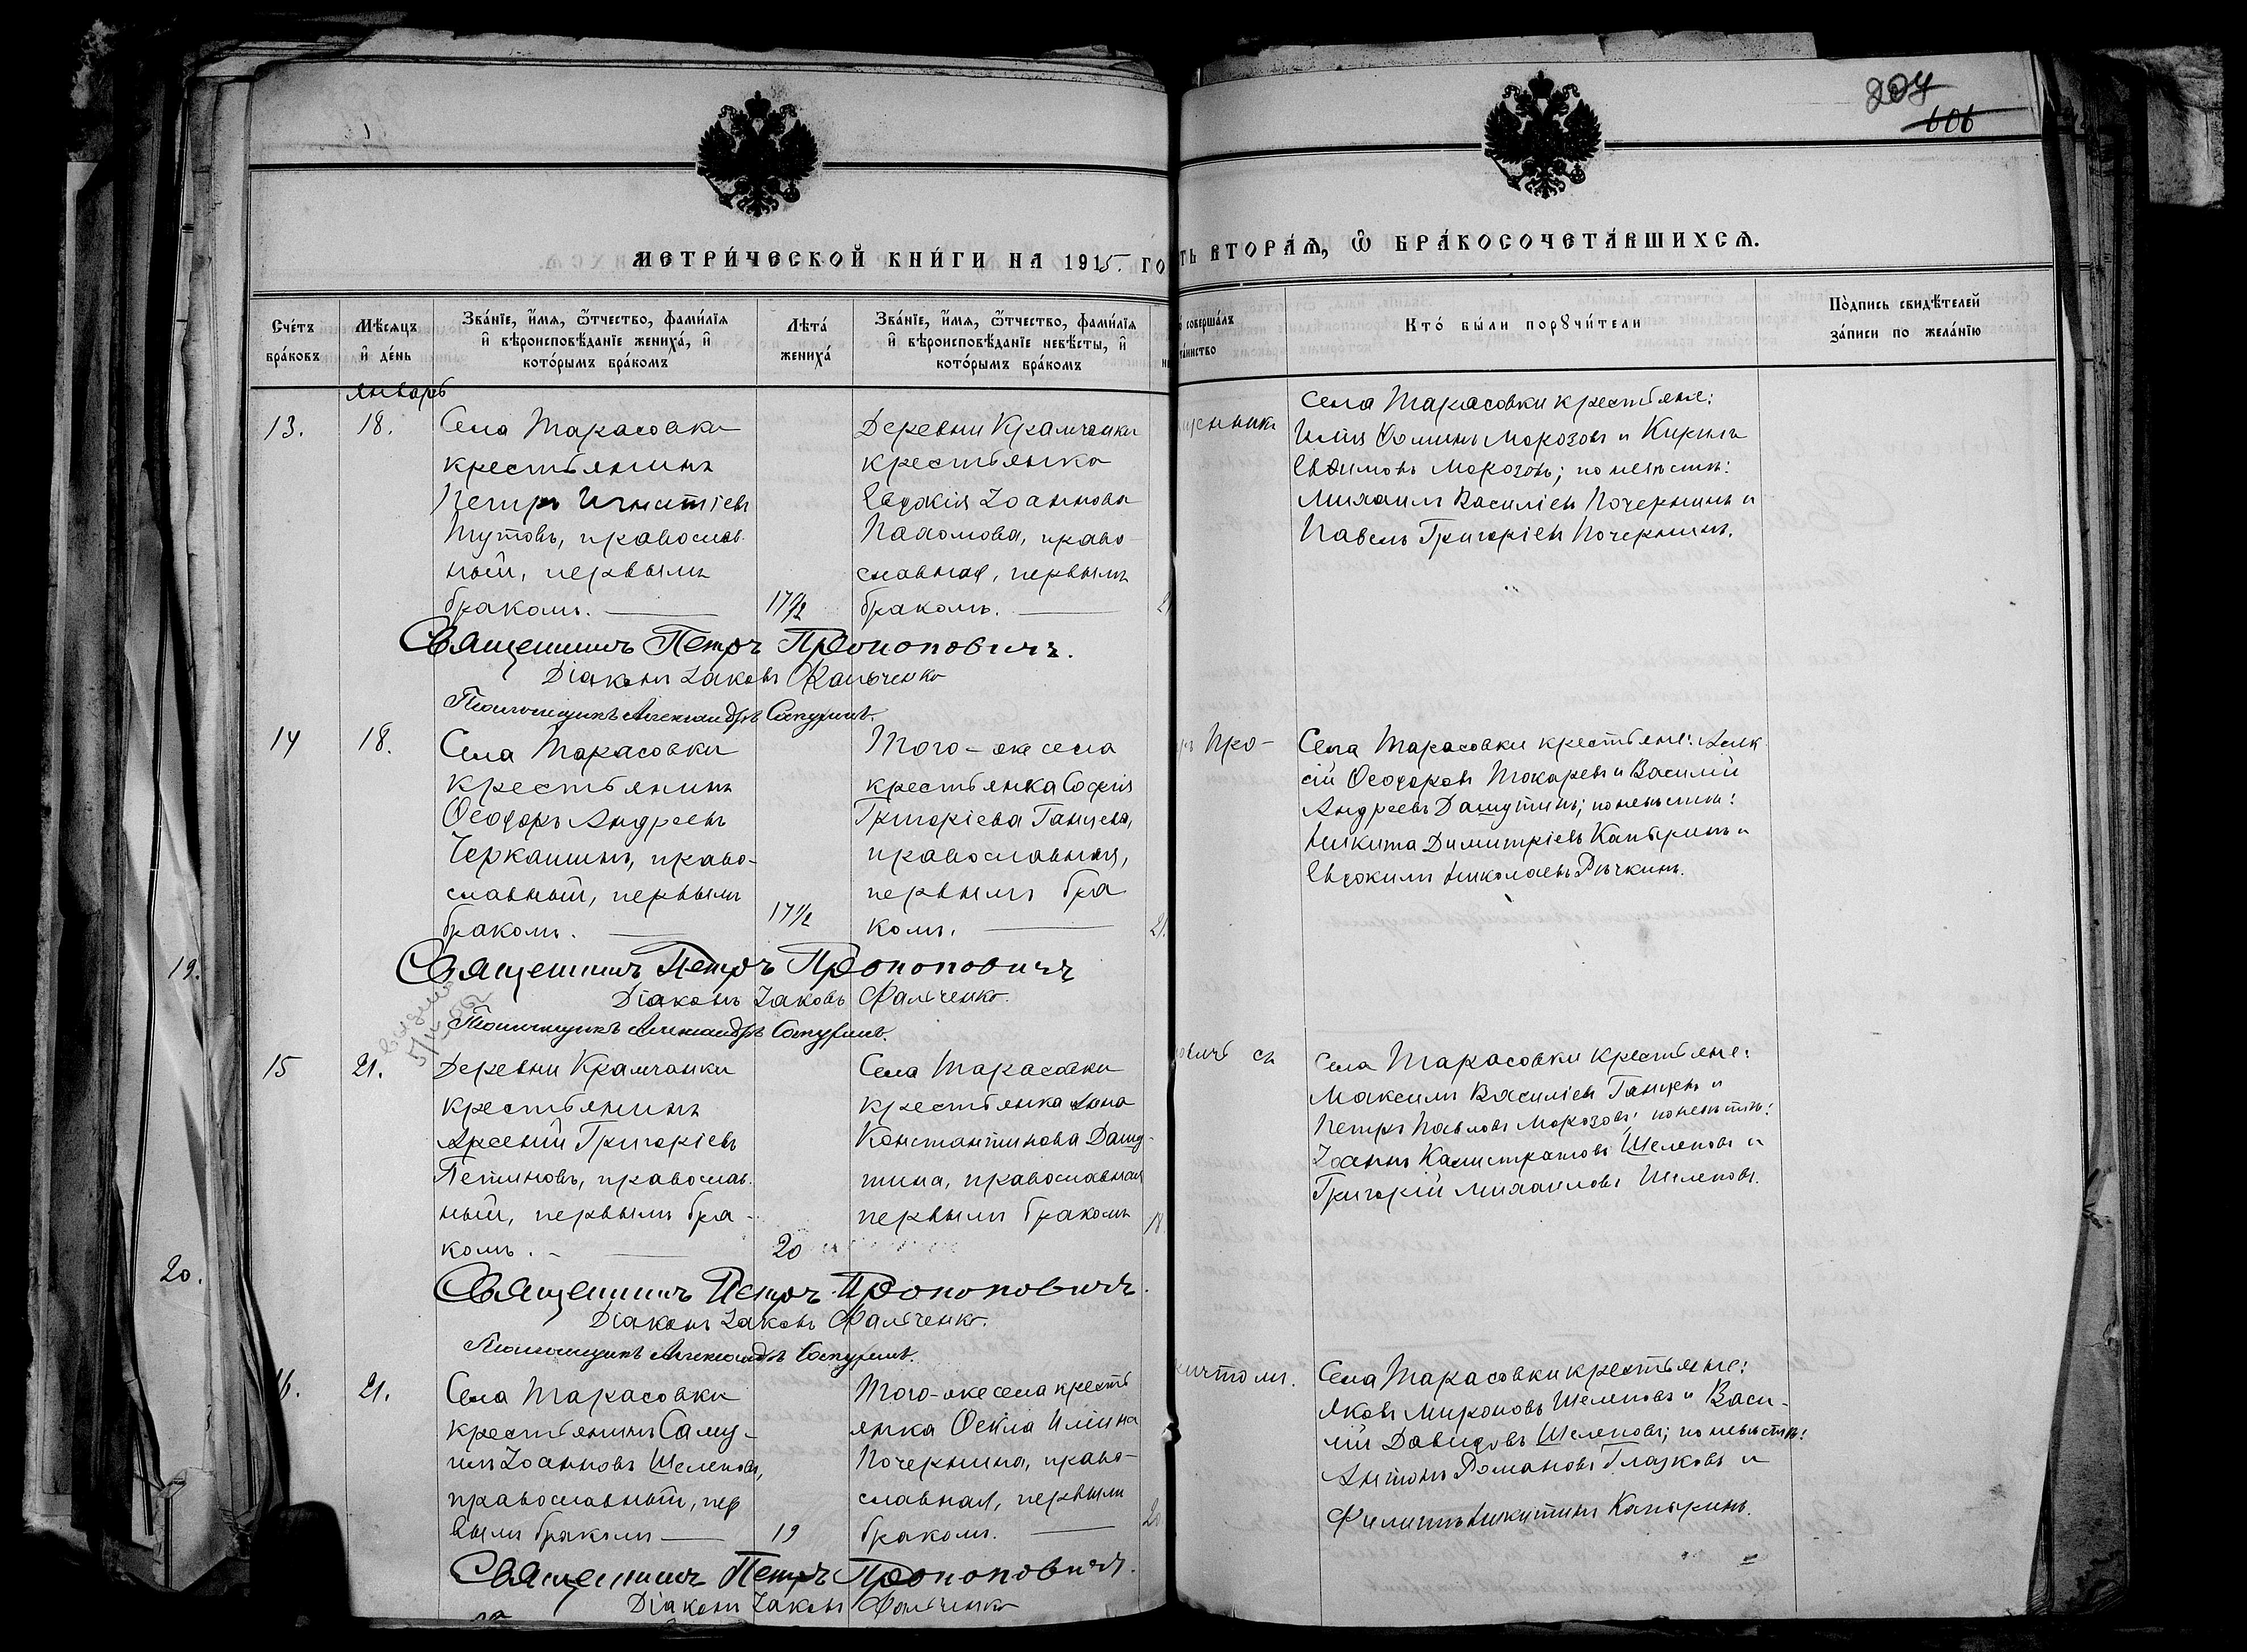 204
606
МЕТРИ́ЧЕСКОЙ КНИ́ГИ НА 1915. ГО
ТЬ ВТОРА́Ѧ, Ѽ БРА́КОСОЧЕТА́ВШИХСѦ.
Сче́тъ бра́ковъ
Мѣ́сяцъ и҆ де́нь
Зва́нїе, и҆́мѧ, ѻ҆́тчество, фами́лїѧ и҆ вѣроисповѣ́данїе жениха́, и҆ кото́рымъ бра́комъ
Лѣта́ жениха́
Зва́нїе, и҆́мѧ, ѻ҆́тчество, фами́лїѧ и҆ вѣроисповѣ́данїе невѣ́сты, и҆ кото́рымъ бра́комъ
соверша́лъ
та́инство
Кто́ бы́ли порꙋчи́тели
По́дпись свидѣ́телей за́писи по жела́нїю
январь
13.
18.
Села Тарасовки
крестьянинъ
Петръ Игнатіевъ
Тутовъ, православ
ный, первымъ
бракомъ.
17½
Деревни Крамчанки
крестьянка
Евдокія Іоаннова
Пахомова, право
славная, первымъ
бракомъ.
Села Тарасовки крестьяне:
Илія Ѳоминъ Морозовъ и Кирилъ
Евѳимовъ Морозовъ; по невѣстѣ:
Михаилъ Василіевъ Почернинъ и
Павелъ Григоріевъ Почернинъ.
Священникъ Петръ Прокоповичъ.
Діаконъ Іаковъ Фальченко
Псаломщикъ Александръ
14
18.
Села Тарасовки
крестьянинъ
Ѳеодоръ Андреевъ
Черкашинъ, право-
славный, первымъ
бракомъ.
17½
Того-же села
крестьянка Софія
Григоріева Ганцева,
православная,
первымъ бра
комъ.
21.
ръ Про-
Села Тарасовки крестьяне: Алек
сій Ѳеодоровъ Токаревъ и Василій
Андреевъ Дашутинъ; по невѣстѣ:
Никита Димитріевъ Капыринъ и
Евдокимъ Николаевъ Рѣчкинъ.
Священникъ Петръ Прокоповичъ
Діаконъ Іаковъ Фальченко.
Псаломщикъ Александръ
19.
15
21.
Деревни Крамчанки
крестьянинъ
Арсеній Григоріевъ
Петиновъ, православ
ный, первымъ бра-
комъ.
20
Села Тарасовки
крестьянка Анна
Константинова Дашу-
тина, православная
первымъ бракомъ
18.
овичъ съ
Села Тарасовки крестьяне:
Максимъ Василіевъ Ганцевъ и
Петръ Павловъ Морозовъ; по невѣстѣ:
Іоаннъ Калистратовъ Шелеповъ и
Григорій Михаиловъ Шелеповъ.
Священникъ Петръ Прокоповичъ.
Діаконъ Іаковъ Фальченко.
Псаломщикъ Александръ
20.
16.
21.
Села Тарасовки
крестьянинъ Саму-
илъ Іоанновъ Шелеповъ,
православный, пер
вымъ бракомъ
19
Того-же села кресть
янка Ѳекла Иліина
Почернина, право-
славная, первымъ
бракомъ.
20
Села Тарасовки крестьяне:
Яковъ Мироновъ Шелеповъ и Васи-
лій Давидовъ Шелеповъ; по невѣстѣ:
Антонъ Романовъ Глазковъ и
Филиппъ Никитинъ Капыринъ.
Священникъ Петръ Прокоповичъ.
Діаконъ Іаковъ Фальченко